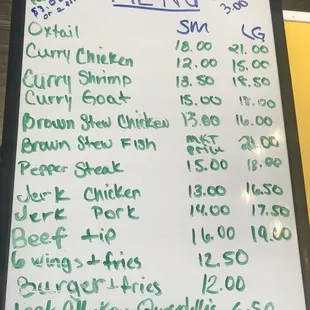 MENU
3.00
SM LG
Oxtail 18.00 21.00
Curry Chicken 12.00 15.00
Curry Shrimp 13.50 18.50
Curry Goat 15.00 18.00
Brown Stew Chicken 13.00 16.00
Brown Stew Fish MKT Price 21.00
Pepper Steak 15.00 18.00
Jerk Chicken 13.00 16.50
Jerk Pork 14.00 17.50
Beef tip 16.00 19.00
6 wings + fries 12.50
Burger + fries 12.00
6.50